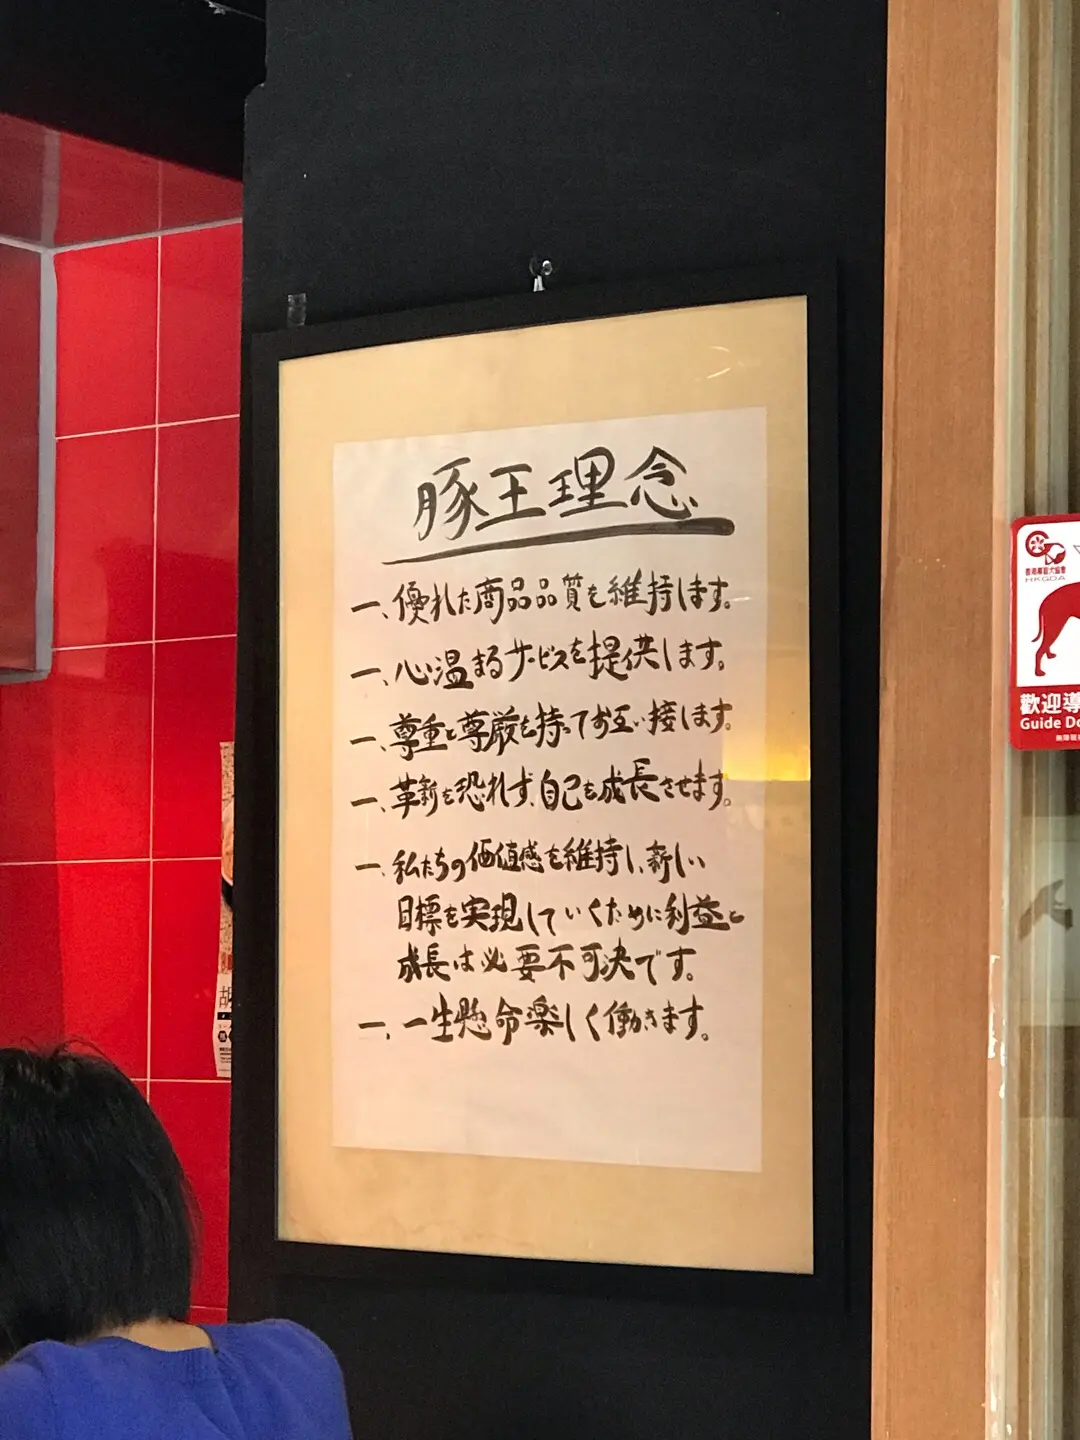 豚王理念
一、優れた商品品質を維持します。
一、心温まるサービスを提供します。
一、尊重と尊厳を持ってお互い接します。
一、革新を恐れず、自己を成長させます。
一、私たちの価値感を維持し、新しい
目標を実現していくために利益と
成長は必要不可決です。
一、一生懸命楽しく働きます。
香港導盲犬協會
HKGDA
歡迎導
Guide Do
胡